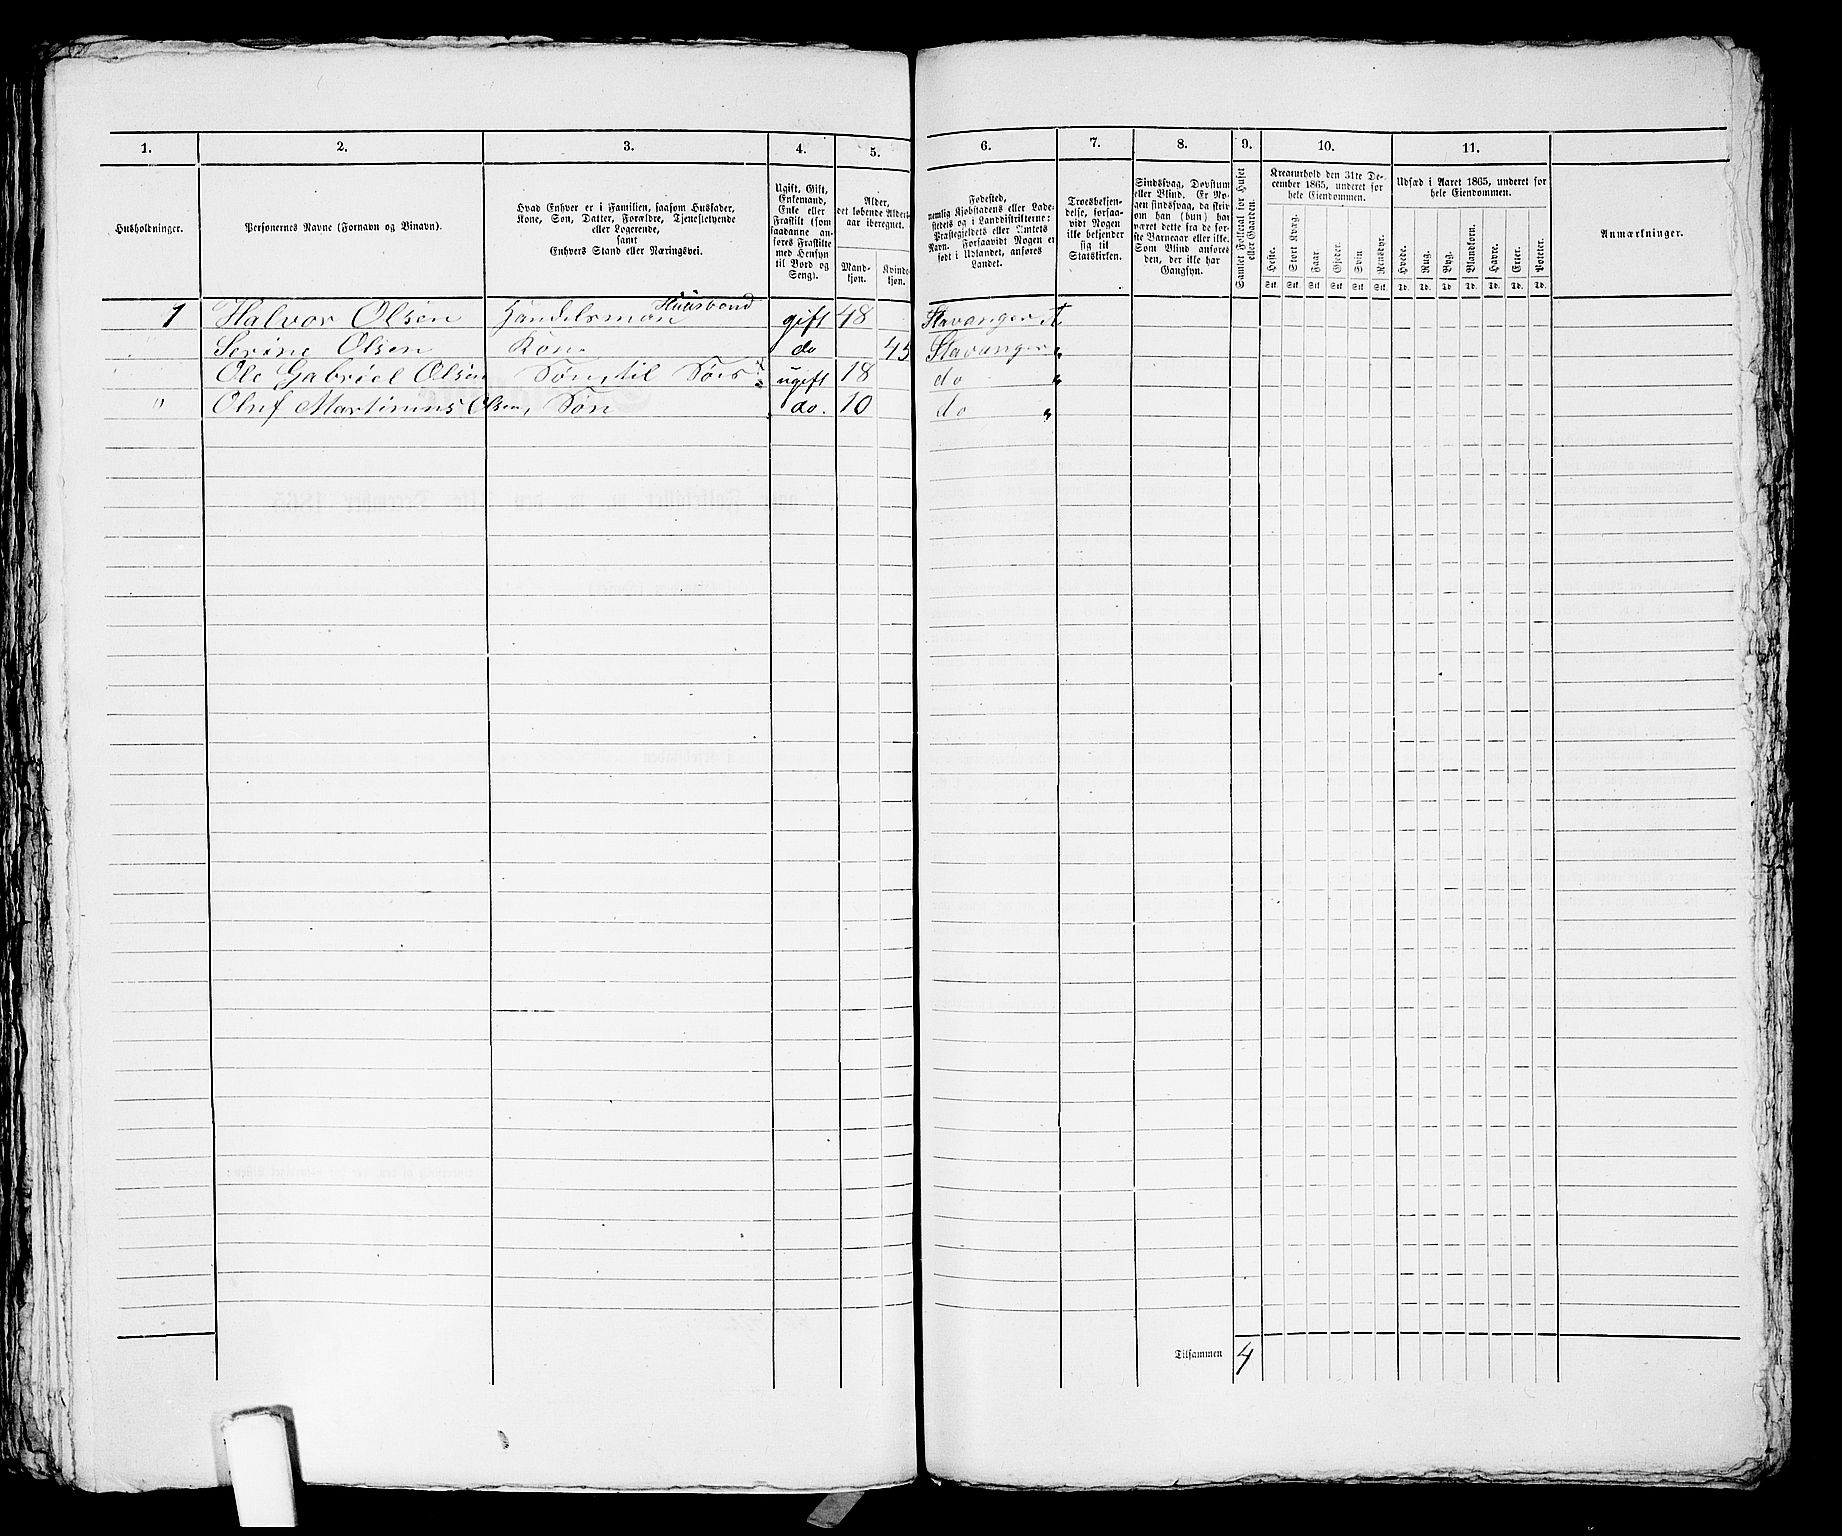 1. 2. 3. 4. 5. 6. 7. 8. 9. 10. 11.
Husholdninger.
Personernes Navne (Fornavn og Binavn).
Hvad Enhver er i Familien, saasom Husfader,
Kone, Søn, Datter, Forældre, Tjenestetyende
eller Logerende,
samt
Enhvers Stand eller Næringsvei.
Ugift, Gift,
Enkemand,
Enke eller
Fraskilt (som
saadanne an-
føres Fraskilte
med Hensyn
til Bord og
Seng).
Alder,
det løbende Alders-
aar iberegnet.
Mand-
kjøn.
Kvinde-
kjøn.
Fødested,
nemlig Kjøbstadens eller Lade-
stedets og i Landdistrikterne:
Præstegjeldets eller Amtets
Navn. Forsaavidt Nogen er
født i Udlandet, anføres
Landet.
Troesbekjen-
delse, forsaa-
vidt Nogen
ikke bekjender
sig til
Statskirken.
Sindssvag, Døvstum
eller Blind. Er No-
gen sindssvag, da skriv
om han (hun) har
været dette fra de før-
ste Barneaar eller ikke.
Som Blind anføres
den, der ikke har
Gangsyn.
Samlet Folketal for Huset
eller Gaarden.
Kreaturhold den 31te De-
cember 1865, underet for
hele Eiendommen.
Heste. Stort Kvæg. Faar Gjeder. Svin Rensdyr.
Stk. Stk. Stk. Stk. Stk. Stk.
Udsæd i Aaret 1865, underet for
hele Eiendommen.
Hvede. Rug. Byg. Blandkorn. Havre. Erter. Poteter.
Td. Td. Td. Td. Td. Td. Td.
Anmærkninger.
1 Halvor Olsen Handelsman Huusbond gift 48 Stavanger
" Serine Olsen Kone do 45 Stavanger "
" Ole Gabriel Olsen Søn, til Søes ugift 18 do "
" Oluf Martinius Olsen, Søn do. 10 do "
Tilsammen 4